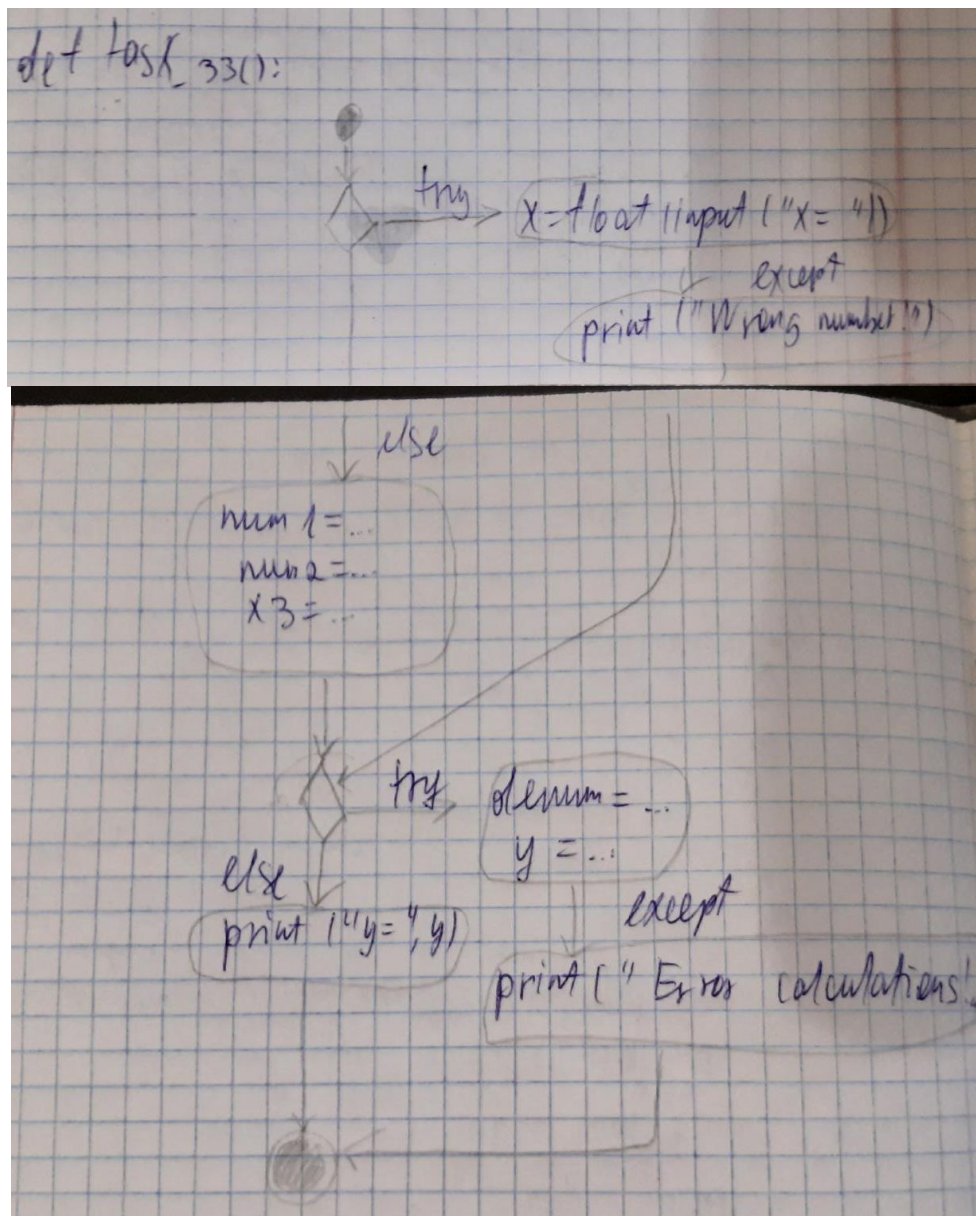 def task_33():
try
x=float(input("x= "))
except
print ("Wrong number!")
else
num1=...
num2=...
x3=...
try
denum=...
y=...
else
print ("y=", y)
except
print ("Error calculations!